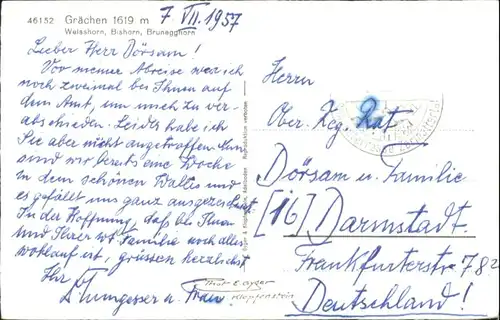 46152 Grächen 1619 m
Weisshorn, Bishorn, Brunegghorn
7. VII. 1957
Lieber Herr Dörsam!
Vor meiner Abreise war ich
noch zweimal bei Ihnen auf
dem Amt, um mich zu ver-
abschieden. Leider habe ich
Sie aber nicht angetroffen. Nun
sind wir bereits eine Woche
in dem schönen Wallis und
es gefällt uns ganz ausgezeichnet.
In der Hoffnung, daß bei Ihnen
und Ihrer w. Familie noch alles
wohlauf ist, grüssen herzlichst
Ihr
u. Frau
Klopfenstein
Reproduktion verboten
Herrn
Ober. Reg. Rat
Dörsam u. Familie
[16] Darmstadt
Frankfurterstr. 782
Deutschland!